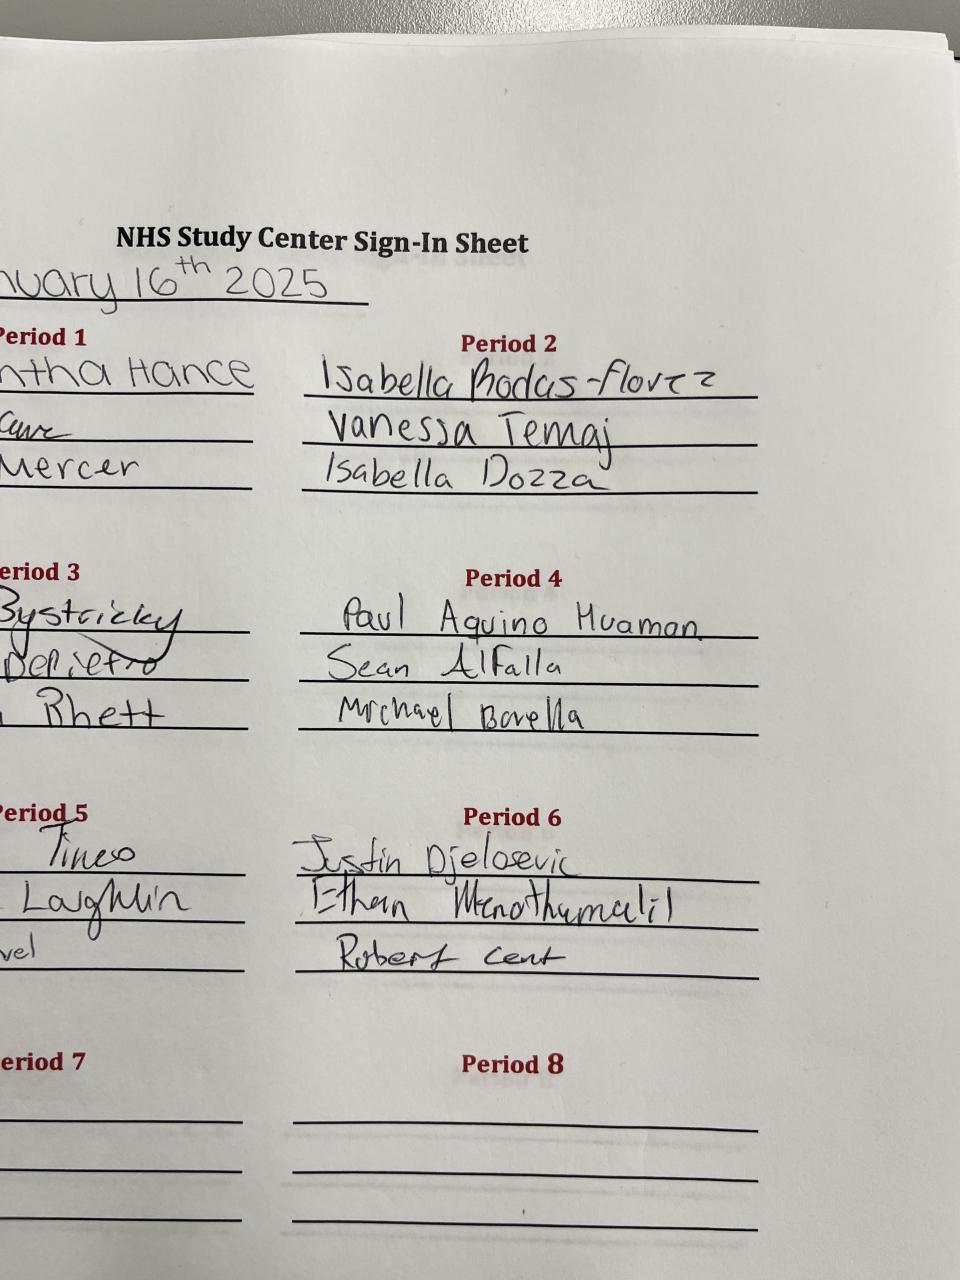 NHS Study Center Sign-In Sheet
nuary 16th 2025
Period 1
Period 2
ntha Hance
Isabella Rodas-florez
Vanessa Temaj
Mercer
Isabella Dozza
eriod 3
Period 4
Bystricky
Paul Aquino Huaman
DePietro
Sean Alfalla
Rhett
Michael Borella
Period 5
Period 6
Tineo
Justin Djelosevic
Laughlin
Ethan Menothumalil
vel
Robert Cent
eriod 7
Period 8